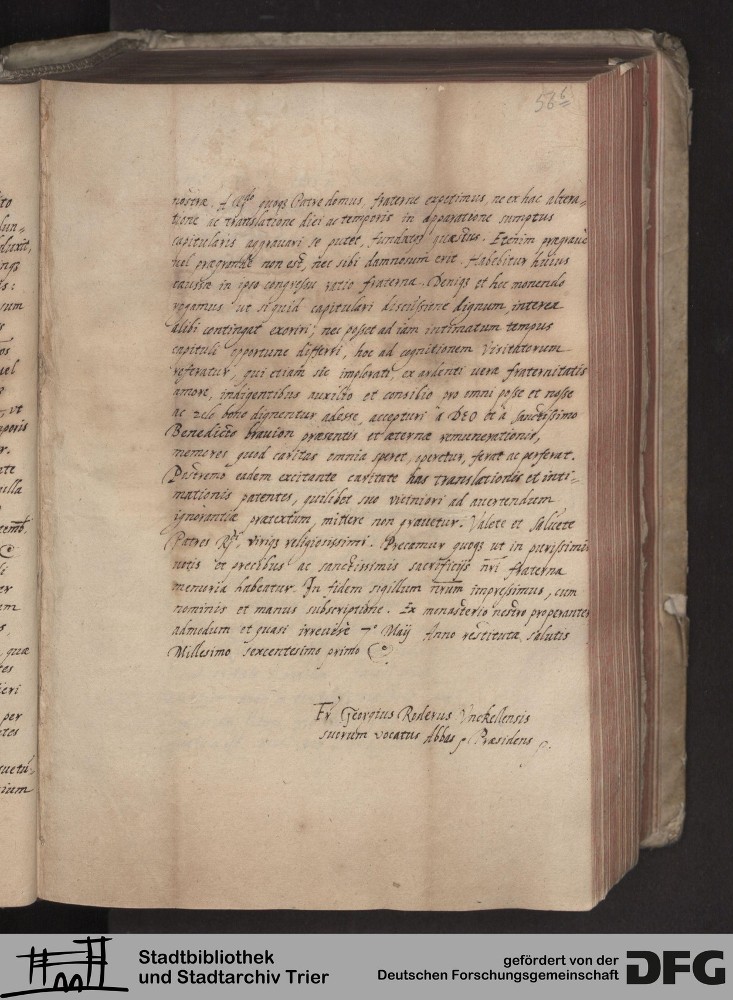 566
nostræ. A quoqȝ Patre domus, fraterne expetimus, ne ex hac altera=
tione ac translatione diei ac temporis in apparatione sumptus
capitularis aggravari se putet, fundatos quæstus. Etenim prægrave
vel non est, nec sibi damnosum erit. Habebitur huius
caussæ in ipso congressu ratio fraterna. Deniqȝ et hoc monendo
rogamus ut si quid capitulari discussione dignum, interea
alibi contingat exoriri, nec posset ad iam intimatum tempus
capituli opportune differri, hoc ad cognitionem Visitatorum
referatur, qui etiam sic implorati, ex ardenti vera fraternitatis
amore, indigentibus auxilio et consilio pro omni posse et nosse
ac zelo bono dignentur adesse, accepturi a DEO et a sanctissimo
Benedicto bravion præsentis et æternæ remunerationis,
memores quod caritas omnia speret, operetur, ferat ac perferat.
Postremo eadem excitante caritate has translationis et inti=
mationis patentes, quilibet suo viciniori ad avertendum
ignorantiæ prætextum, mittere non gravetur. Valete et salvete
Patres Rdi viriqȝ religiosissimi. Precamur quoqȝ ut in purissimis
votis et precibus ac sanctissimis sacrificijs nri fraterna
memoria habeatur. In fidem sigillum nrum impressimus, cum
nominis et manus subscriptione. Ex monasterio nostro properanter
admodum et quasi 7o Maij Anno restitutæ salutis
Millesimo sexcentesimo primo
Fr Georgius Roderus Vnckellensis
suorum vocatus Abbas Præsidens
Stadtbibliothek
und Stadtarchiv Trier
gefördert von der
Deutschen Forschungsgemeinschaft
DFG